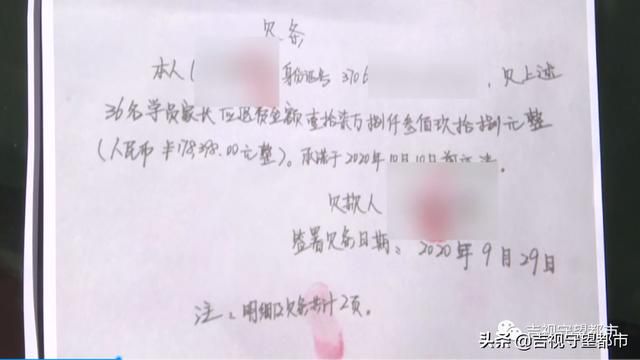 欠条
本人( 身份证号 3706 ,欠上述
36名学员家长应退费金额壹拾柒万捌仟叁佰玖拾捌元整
(人民币 ¥178398.00元整)。承诺于2020年10月10日前
欠款人
签署欠条日期:2020年9月29日
注:明细及欠条共计2页。
吉视守望都市
头条 @吉视守望都市